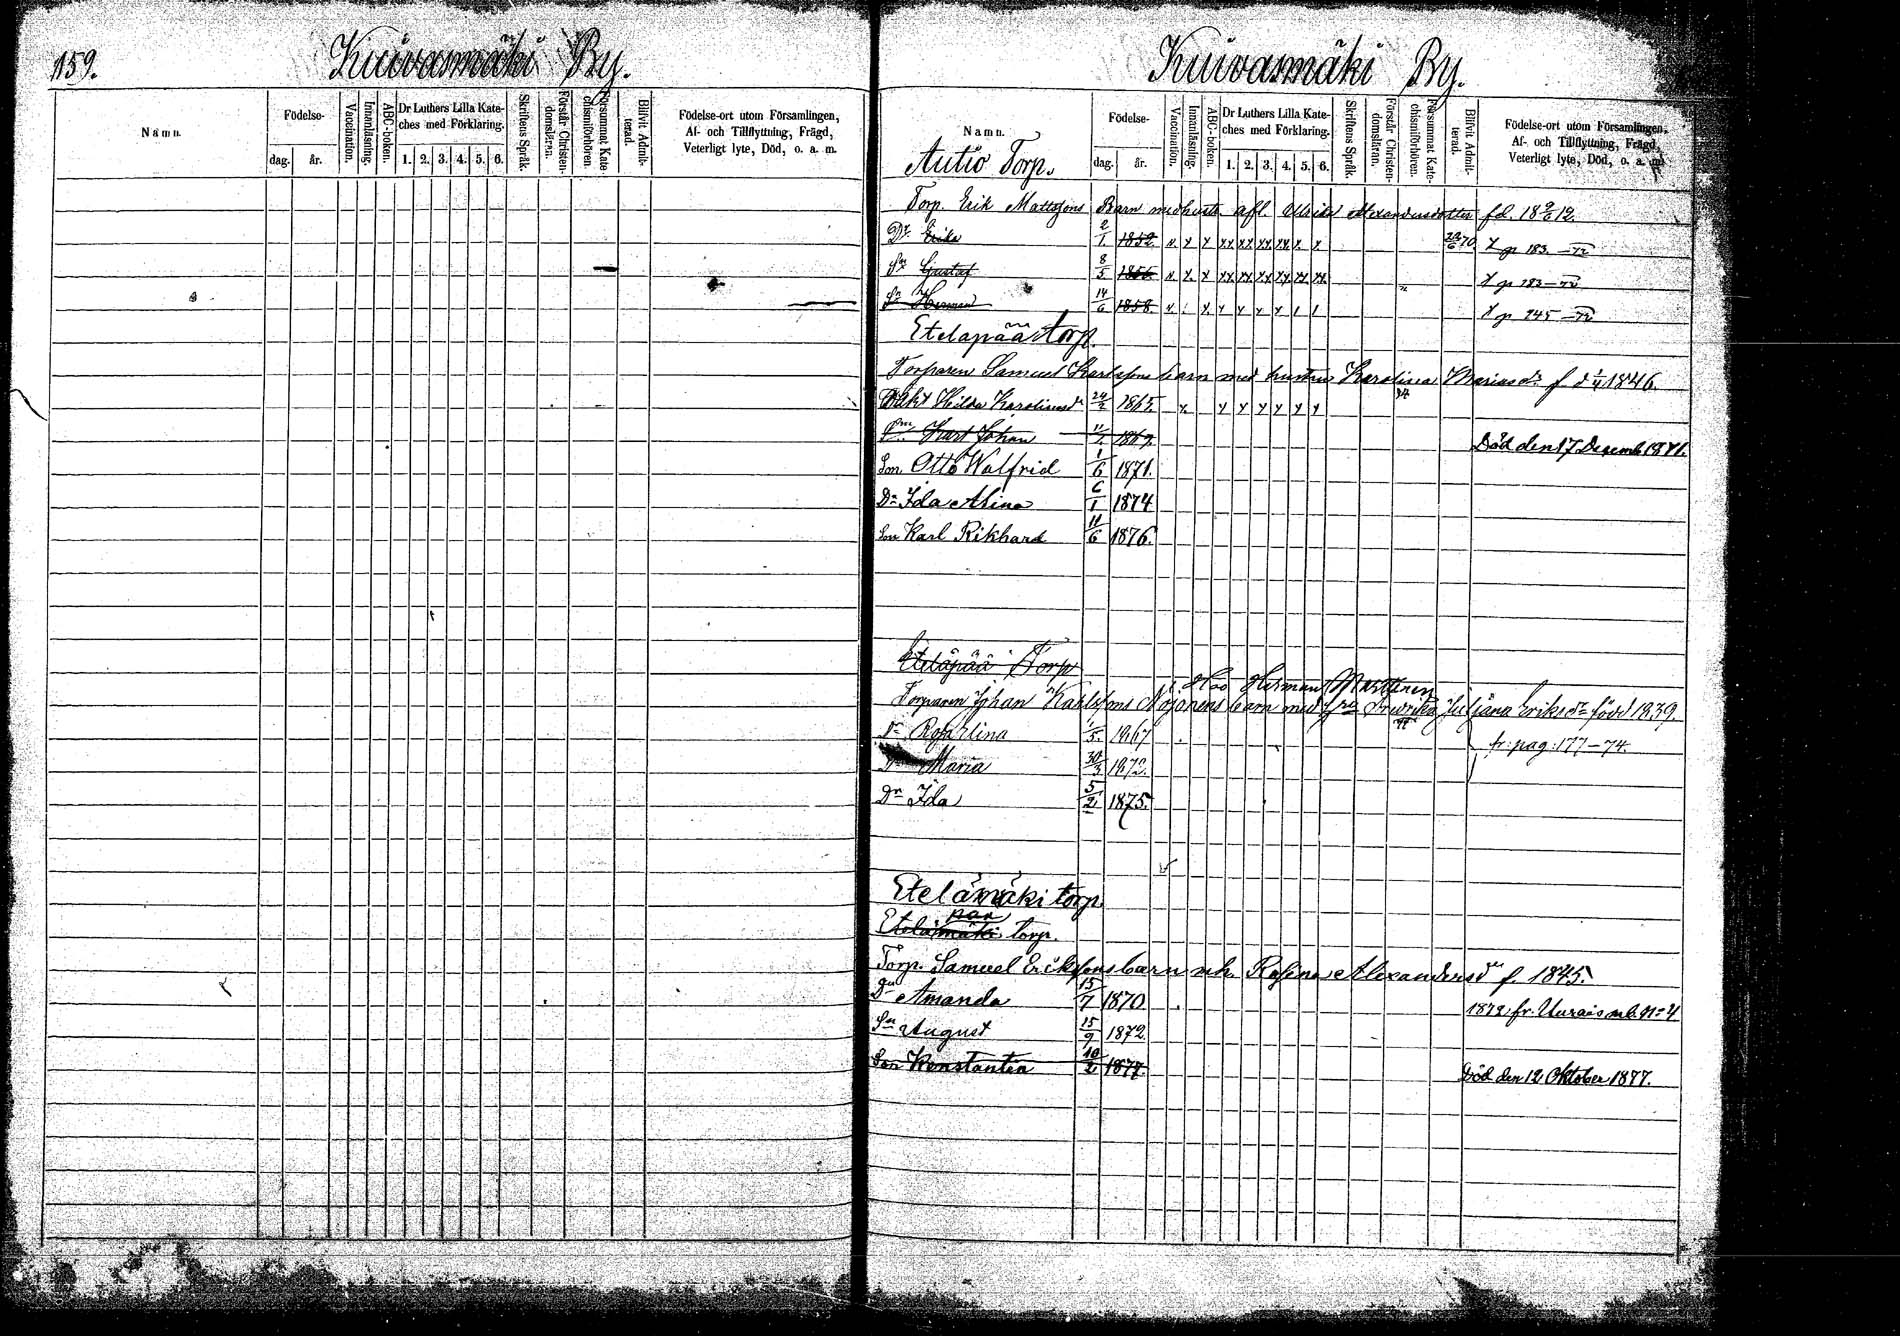 159.
Kuivasmäki By.
Namn.
Födelse-
dag.
år.
Vaccination.
Innanläsning.
ABC-boken.
Dr Luthers Lilla Kate-
ches med Förklaring.
1. 2. 3. 4. 5. 6.
Skriftens Språk.
Förstår Christen-
domsläran.
Försummat Kate-
chismiförhören.
Blifvit Admit-
terad.
Födelse-ort utom Församlingen,
Af- och Tillflyttning, Frägd,
Veterligt lyte, Död, o. a. m.
Kuivasmäki By.
Namn.
Födelse-
dag.
år.
Vaccination.
Innanläsning.
ABC-boken.
Dr Luthers Lilla Kate-
ches med Förklaring.
1. 2. 3. 4. 5. 6.
Skriftens Språk.
Förstår Christen-
domsläran.
Försummat Kate-
chismiförhören.
Blifvit Admit-
terad.
Födelse-ort utom Församlingen,
Af- och Tillflyttning, Frägd,
Veterligt lyte, Död, o. a. m.
Autio Torp.
Torp. Erik Mattssons Barn med hust. afl. Ulrika Alexandersdotter fd. 18 9/6 12.
Dr Erika 2/1 1852. 70. p 183-72
Sn Gustaf 8/5 1856. p 183-72
Sn Herman 14/6 1858. p 245-72
Etelapää torp.
Torparen Samuel Karlssons barn med hustru Karolina Mariasdr f d 1/4 1846.
Hilda Karolina 24/2 1867.
Karl Johan 11/1 1869. Död den 17 Desemb 1871.
Son Otto Walfrid 1/6 1871.
Dr Ida Alina 6/1 1874
Son Karl Rikhard 11/6 1876.
Eteläpää Torp
Herman Marttinen
Torparen Johan Karlssons barn med Eriksdr född 1839.
Dr Rosalina 1/5 1867 fr. pag. 177-74.
Dr Maria 30/3 1872.
Dr Ida 5/2 1875.
Etelämäki torp.
pää
Etelämäki torp.
Torp. Samuel Erikssons barn mh. Rosina Alexandersdr f. 1845.
Dr Amanda 15/7 1870 1872. fr. Uurais
Sn August 15/9 1872.
Son Konstantin 10/2 1877. Död den 12 Oktober 1877.